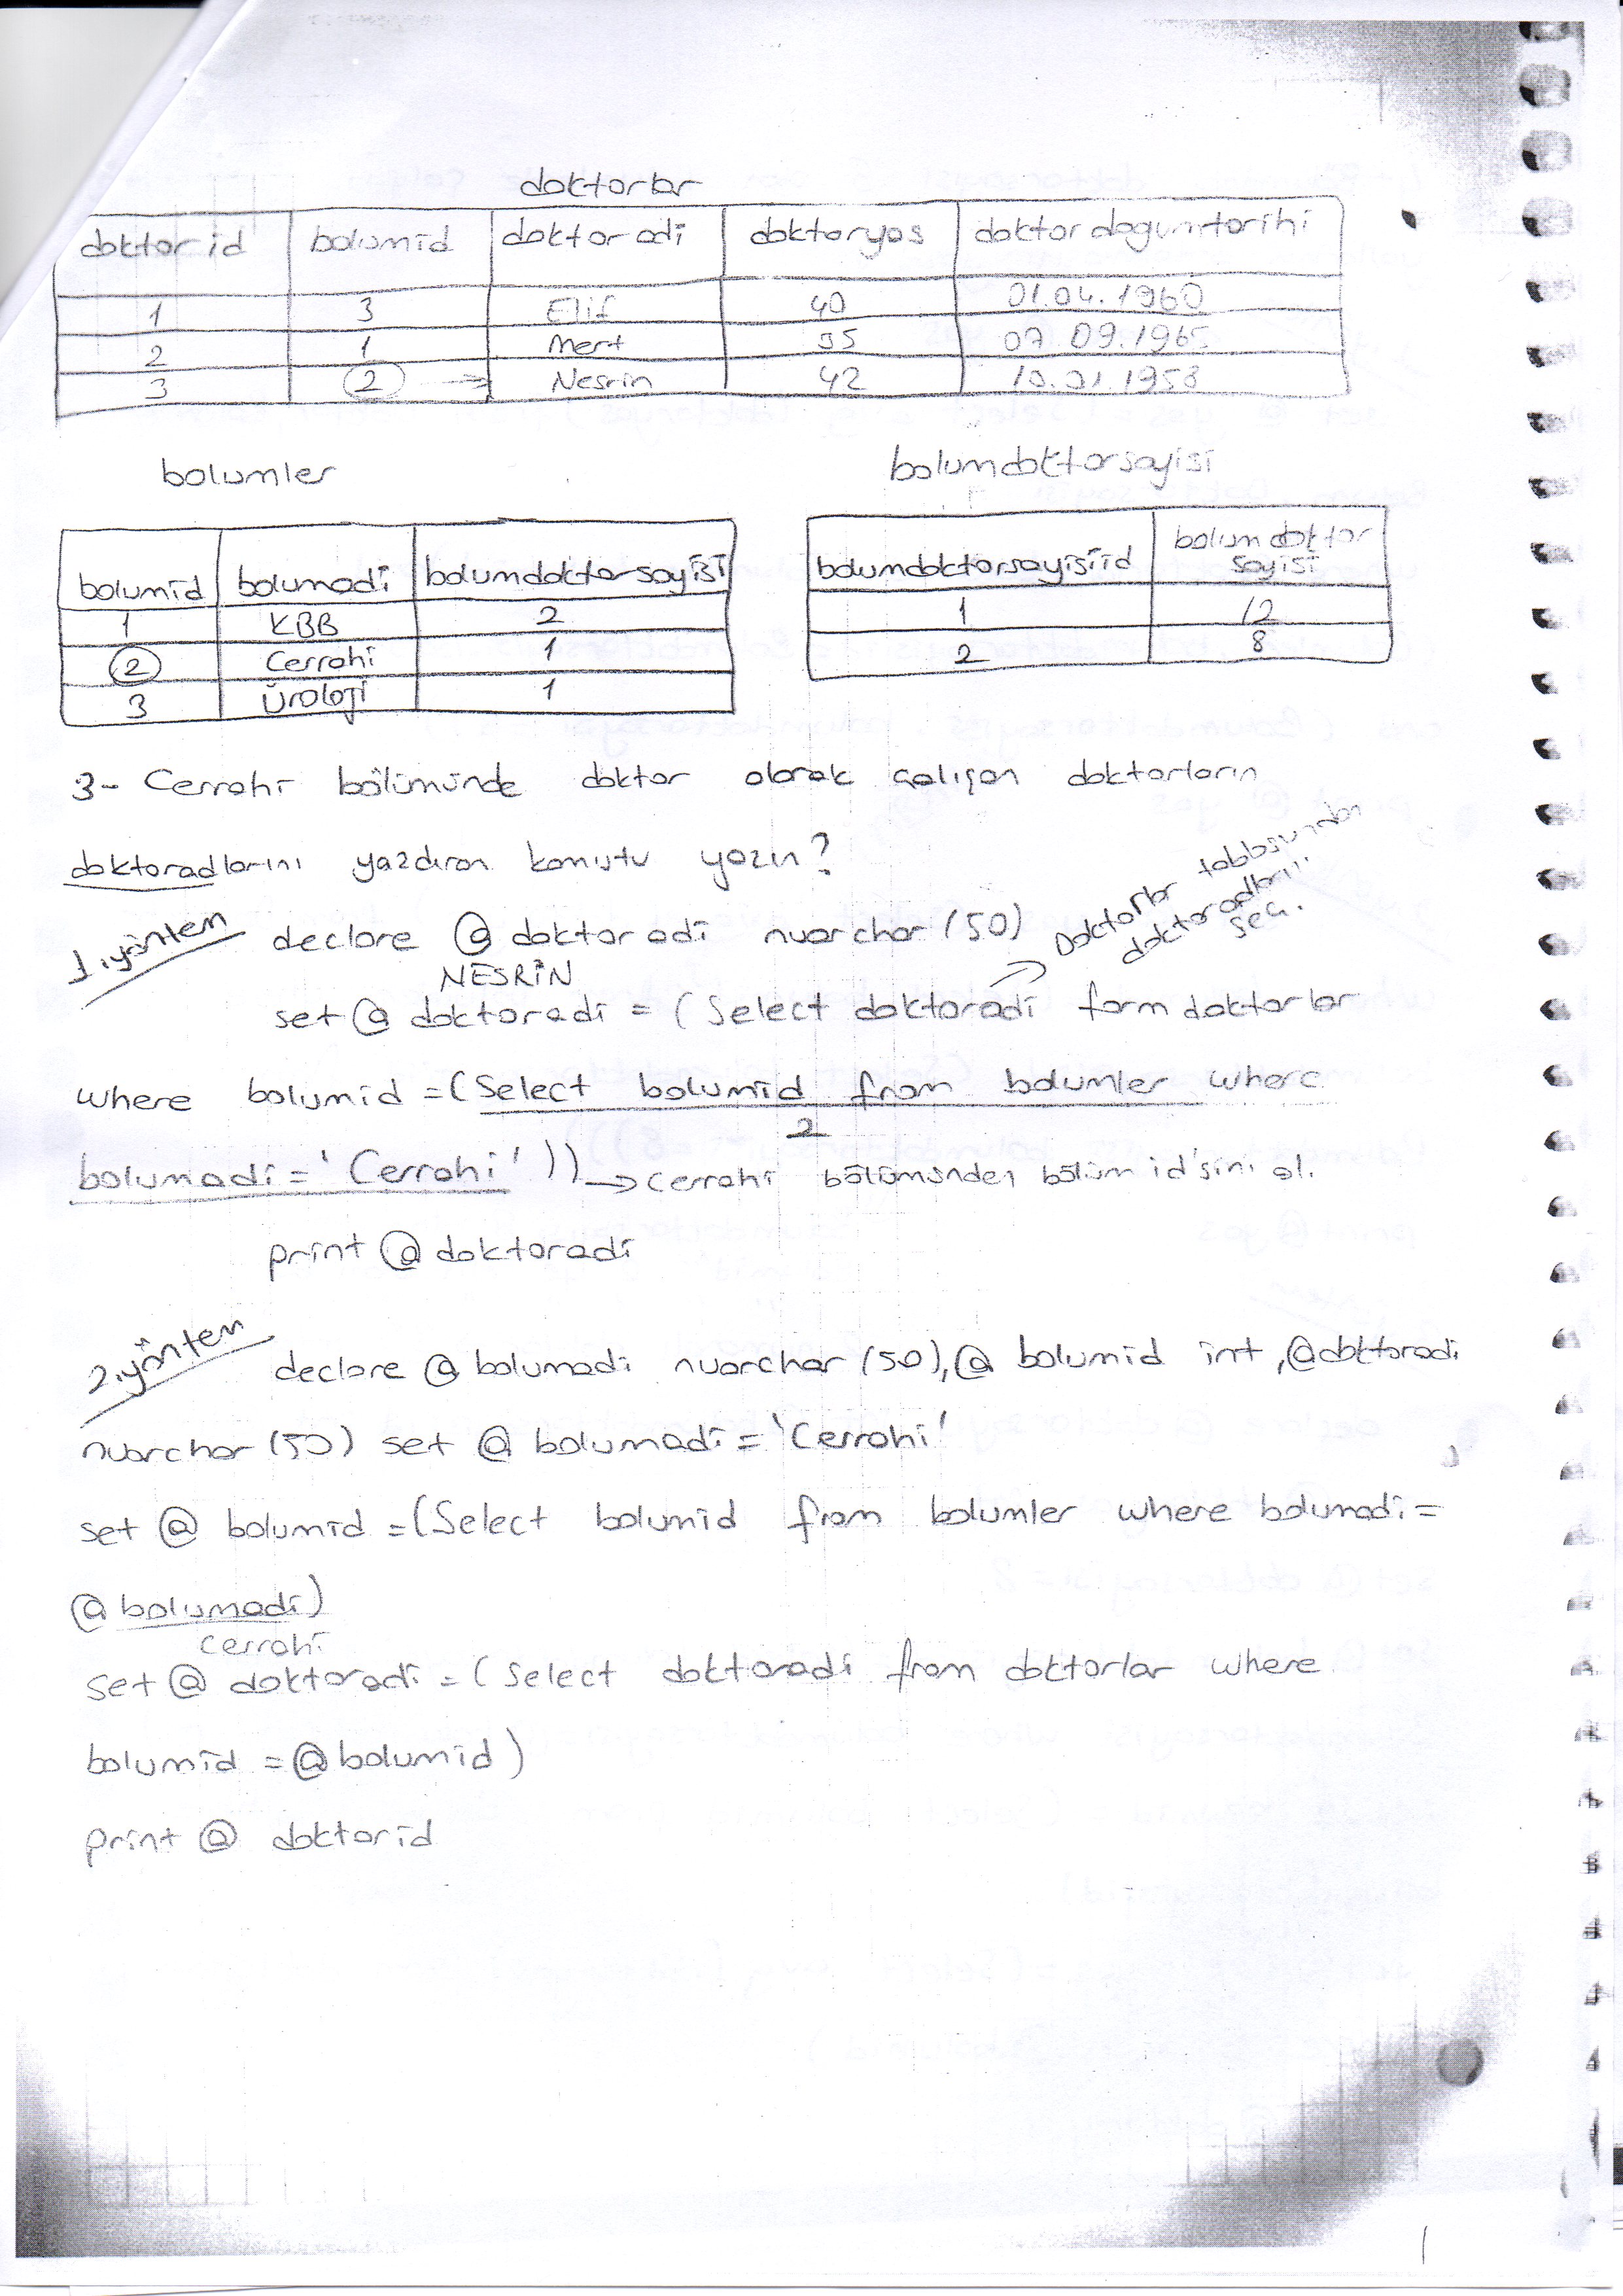 doktorlar
doktor id bolumid doktoradi doktoryas doktordogumtarihi
1 3 Elif 40 01.04.1960
2 1 Mert 35 07.09.1965
3 2 → Nesrin 42 10.01.1958
bolumler bolumdoktorsayisi
bolumid bolumadi bolumdoktorsayisi
1 KBB 2
2 Cerrahi 1
3 Üroloji 1
bolumdoktorsayisiid bolumdoktor sayisi
1 12
2 8
3- Cerrahi bölümünde doktor olarak çalışan doktorların
doktoradlarını yazdıran komutu yazın?
1.yöntem declare @ doktoradi nvarchar (50)
NESRİN
→ Doktorlar tablosundan
doktoradlarını
seç.
set @ doktoradi = (Select doktoradi form doktorlar
where bolumid = (Select bolumid from bolumler where
2
bolumadi = 'Cerrahi')) → Cerrahi bölümünden bölüm id'sini al.
print @ doktoradi
2.yöntem declare @ bolumadi nvarchar (50), @ bolumid int, @doktoradi
nvarchar (50) set @ bolumadi = 'Cerrahi'
set @ bolumid = (Select bolumid from bolumler where bolumadi =
@ bolumadi)
cerrahi
set @ doktoradi = (Select doktoradi from doktorlar where
bolumid = @ bolumid)
print @ doktorid
1